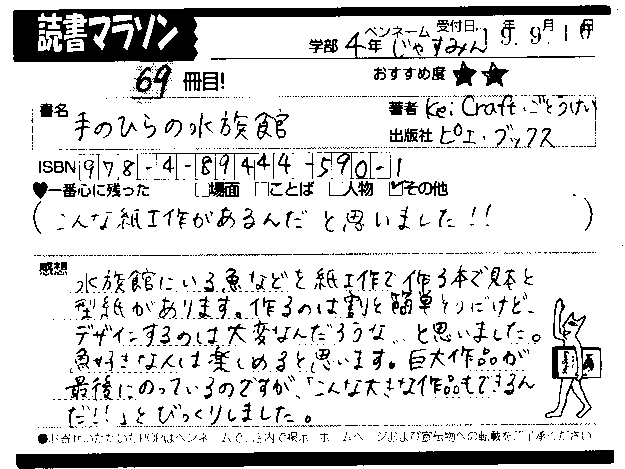 読書マラソン
学部 4年 ペンネーム じゃすみん 受付日 19年9月1日
69冊目!
おすすめ度 ★★
書名 手のひらの水族館
著者 Kei Craft・ごとうけい
出版社 ピエ・ブックス
ISBN 978-4-89444-590-1
♥一番心に残った □場面 □ことば □人物 ☑その他
(こんな紙工作があるんだと思いました!!)
感想
水族館にいる魚などを紙工作で作る本で見本と
型紙があります。作るのは割と簡単そうだけど、
デザインするのは大変なんだろうな…と思いました。
魚好きな人は楽しめると思います。巨大作品が
最後にのっているのですが、「こんな大きな作品もできるん
だ!!」とびっくりしました。
●お寄せいただいたPOPはペンネームで店内で掲示・ホームページおよび宣伝物への転載をご了承ください